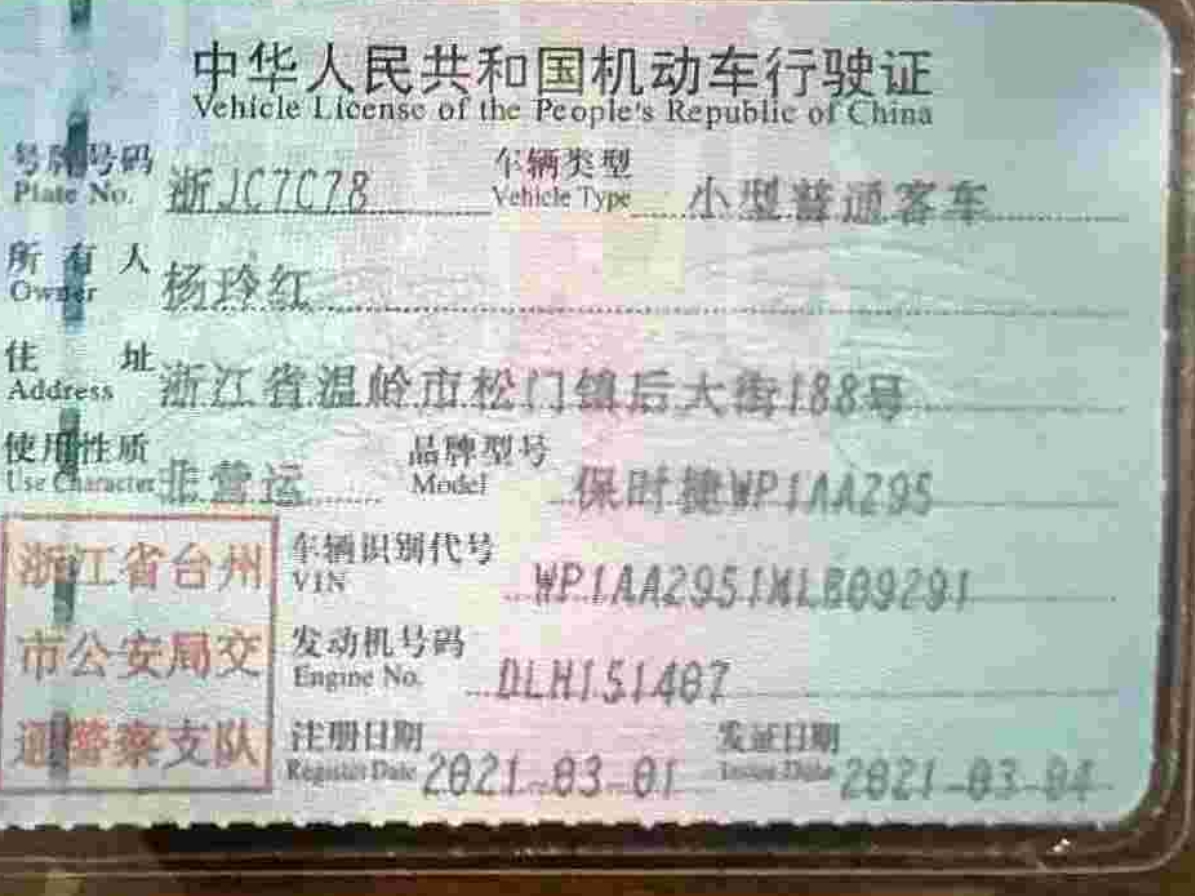 中华人民共和国机动车行驶证
Vehicle License of the People's Republic of China
号牌号码 浙JC7C78 车辆类型 小型普通客车
Plate No. Vehicle Type
所有人 杨玲红
Owner
住址 浙江省温岭市松门镇后大街188号
Address
使用性质 非营运 品牌型号 保时捷WP1AA295
Use Character Model
浙江省台州
市公安局交
通警察支队
车辆识别代号 WP1AA2951MLB09291
VIN
发动机号码 DLH151407
Engine No.
注册日期 2021-03-01 发证日期 2021-03-04
Register Date Issue Date